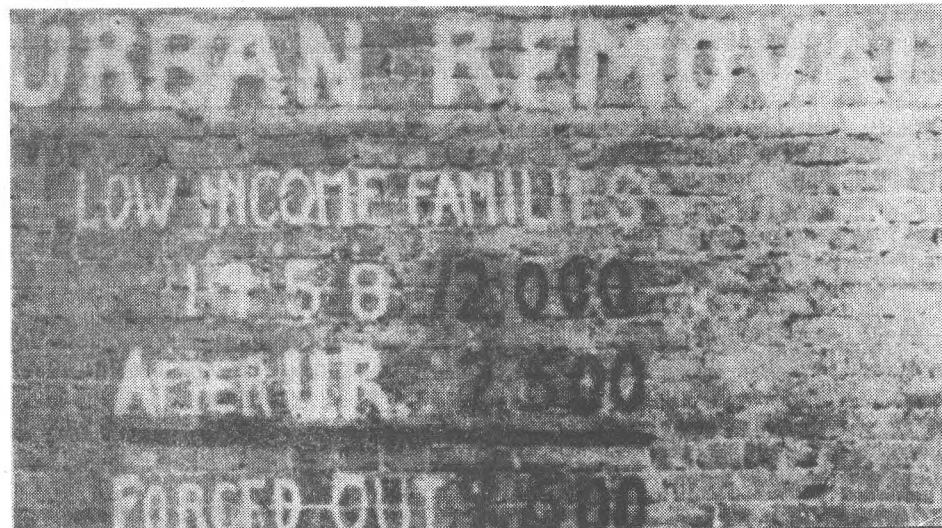 URBAN REMOVAL
LOW INCOME FAMILIES
1958 12000
AFTER U.R.
FORCED OUT